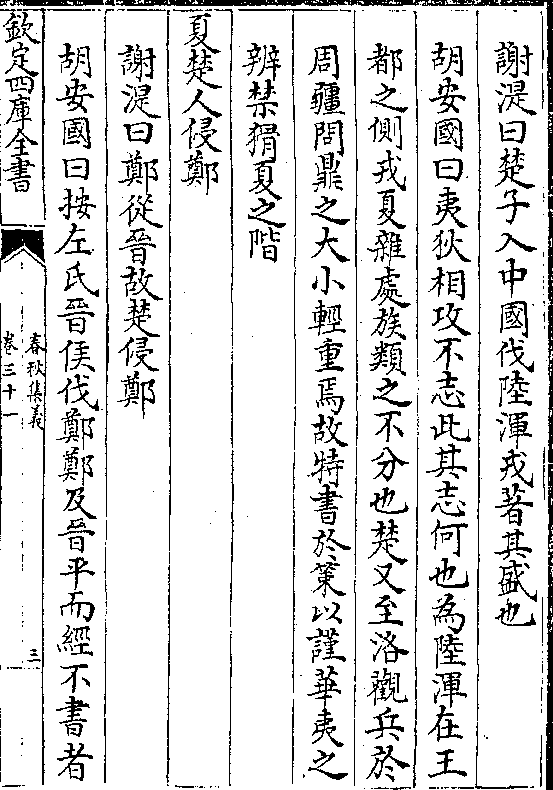 謝湜曰楚子入中國伐陸渾戎著其盛也
胡安國曰夷狄相攻不志此其志何也為陸渾在王
都之側戎夏雜處族類之不分也楚又至洛觀兵於
周疆問鼎之大小輕重焉故特書於策以謹華夷之
辨禁猾夏之階
夏楚人侵鄭
謝湜曰鄭從晉故楚侵鄭
胡安國曰按左氏晉侯伐鄭鄭及晉平而經不書者
欽定四庫全書
春秋集義
卷三十一
三